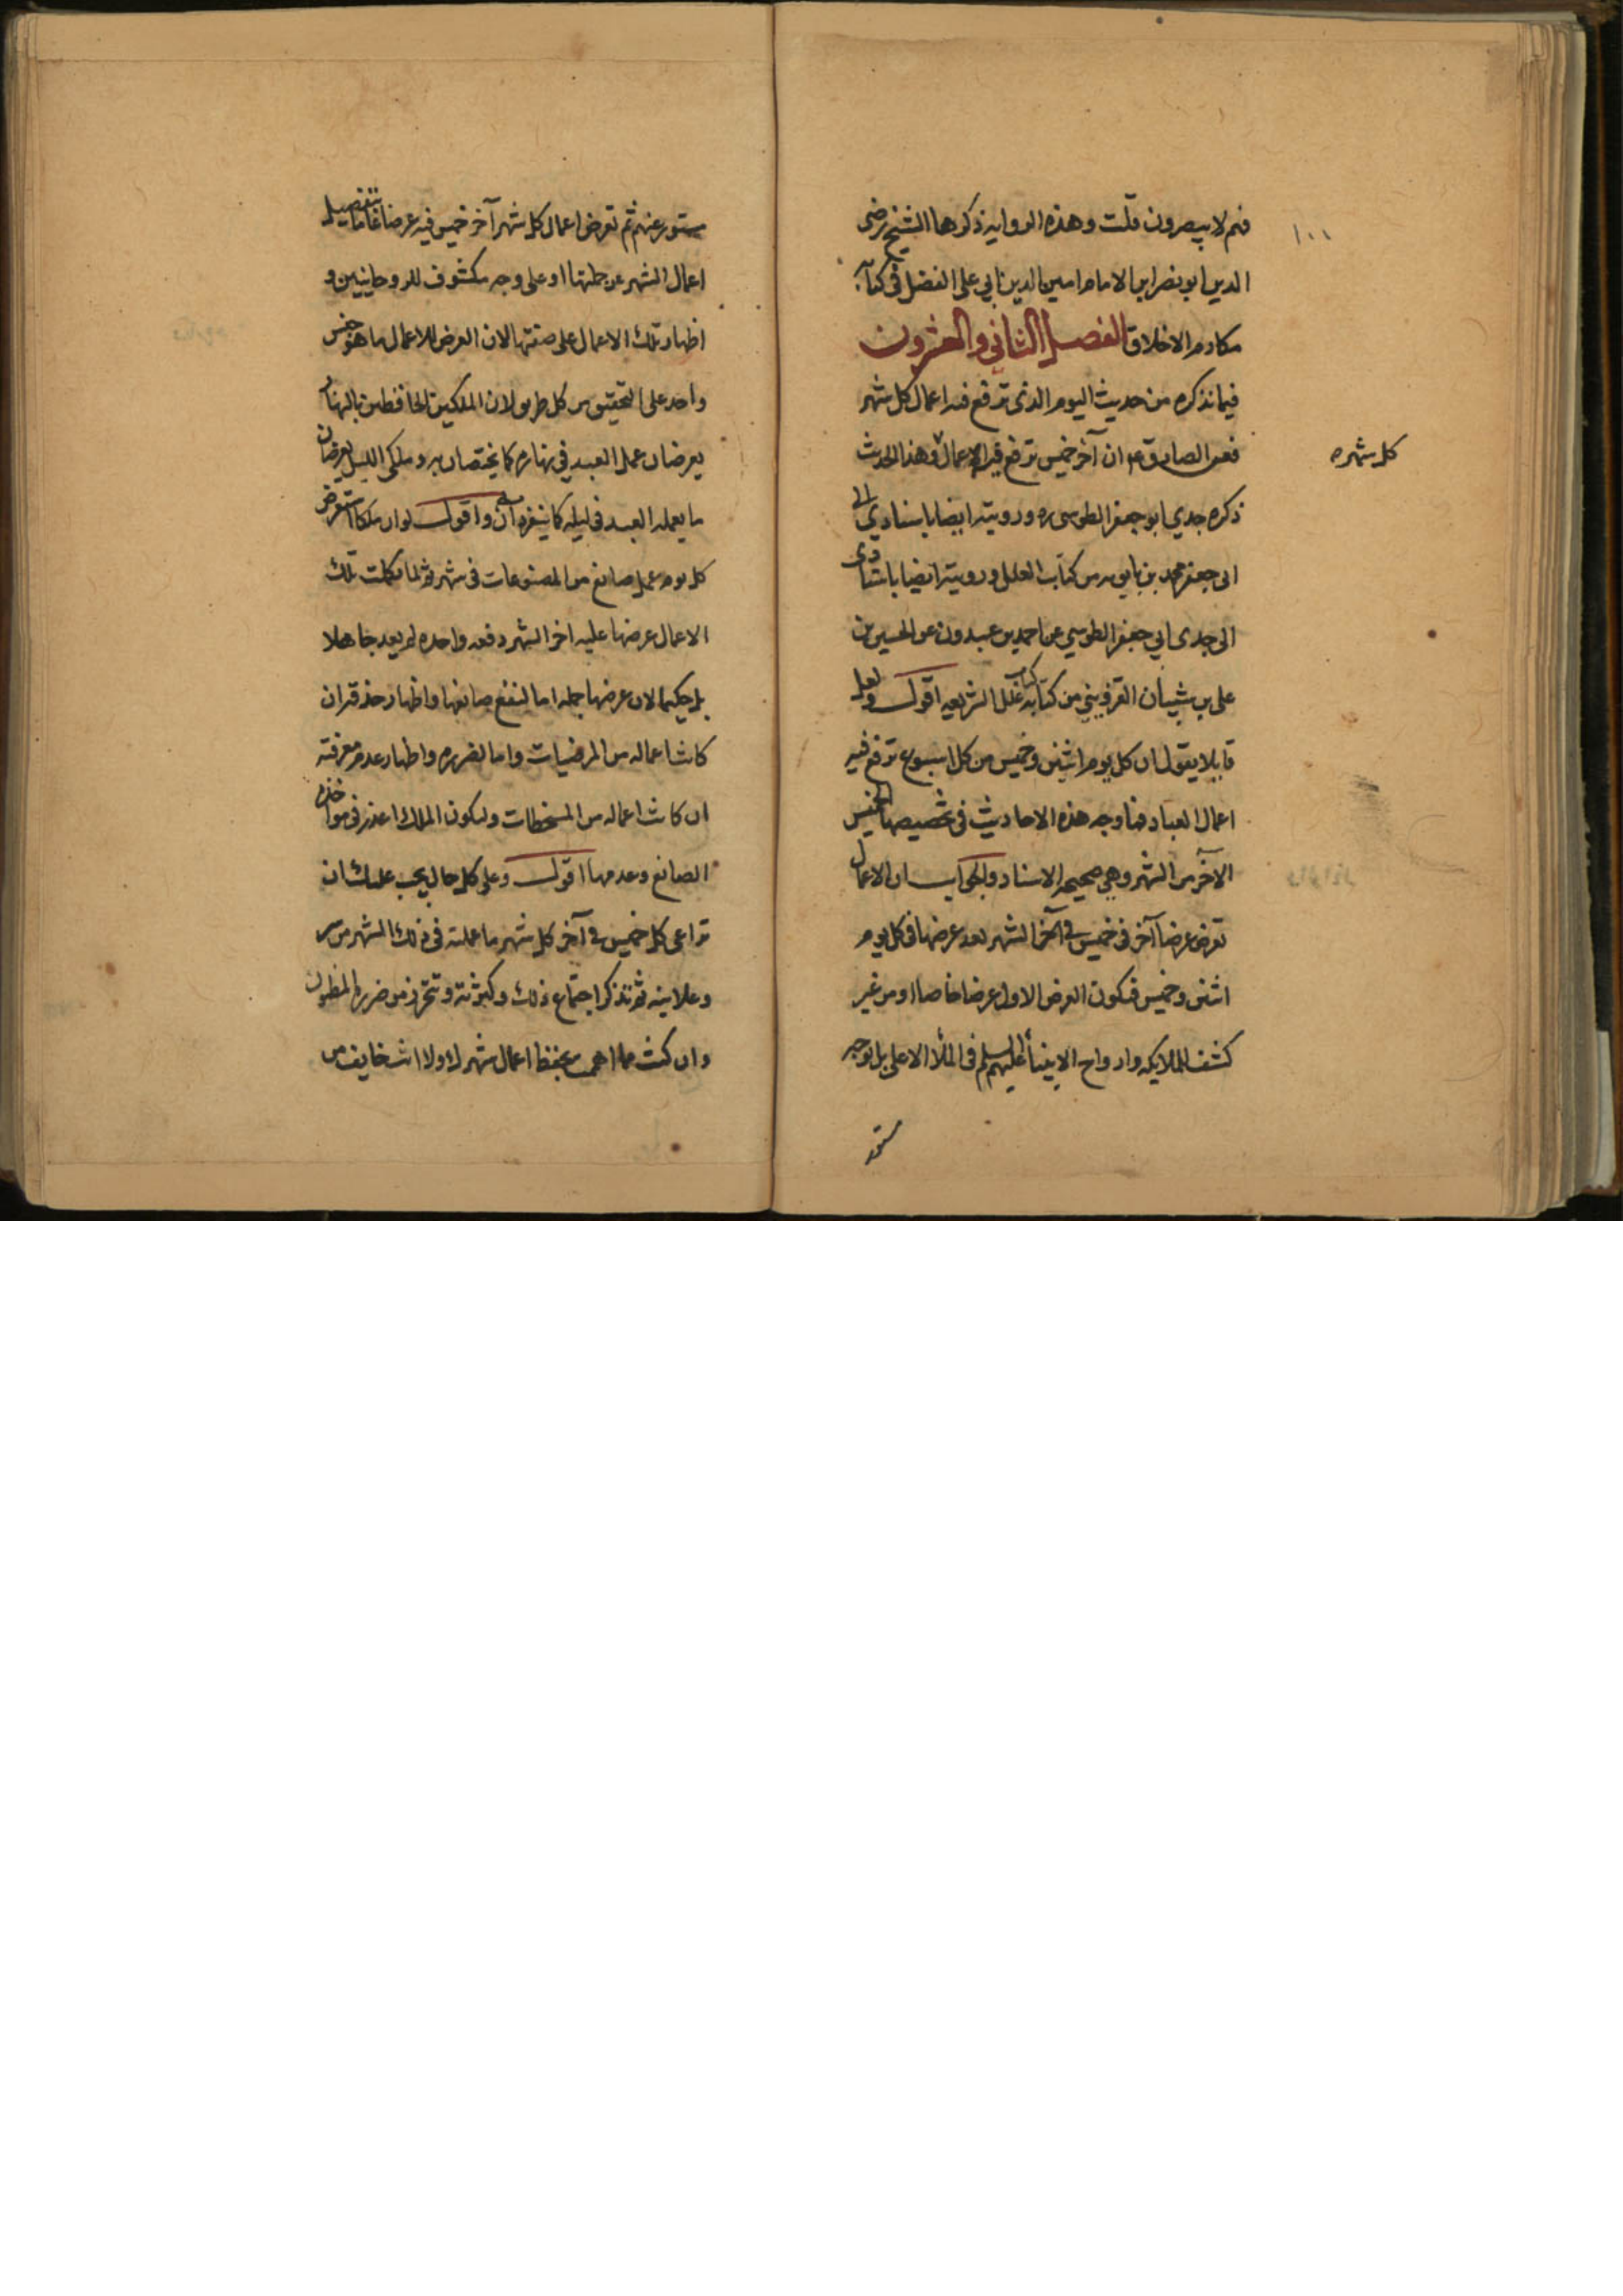 ١٠٠
فهم لا يبصرون قلت وهذه الروايه ذكرها الشيخ رضى
الدين ابو نصر ابن الامام امين الدين ابي على الفضل في كتاب
مكارم الاخلاق الفصل الثانى والعشرون
فيما نذكره من حديث اليوم الذى ترفع فيه اعمال كل شهر
كل شهره
فعن الصادق ع م ان آخر خميس ترفع فيه الاعمال وهذا الحديث
ذكره جدي ابو جعفر الطوسى ره ورويته ايضا باسنادي الى
ابى جعفر محمد بن بابويه من كتاب العلل ورويته ايضا باسنادى
الى جدى ابي جعفر الطوسي عن احمد بن عبدون عن الحسين بن
على بن شيبان القزويني من كتابه كتاب علل الشريعه اقول ولعل
قايلا يقول ان كل يوم اثنين وخميس من كل اسبوع ترفع فيه
اعمال العباد فما وجه هذه الاحاديث في تخصيصها الخميس
الآخر من الشهر وهي صحيحه الاسناد والجواب ان الاعمال
تعرض عرضا آخر فى خميس في آخر الشهر بعد عرضها في كل يوم
اثنين وخميس فيكون العرض الاول عرضا خاصا او من غير
كشف للملايكه وارواح الانبيآء عليهم السلم فى الملأ الاعلى بل بوجه
مستور
مستور عنهم ثم تعرض اعمال كل شهر آخر خميس فيه عرضا عاما بتفصيل
اعمال الشهر عن جملتها او على وجه مكشوف للروحانيين و
اظهار تلك الاعمال على صفتها لان العرض للاعمال ما هو جنس
واحد على التحقيق من كل طريق لان الملكين الحافظين بالنهار
يعرضان عمل العبد في نهاره كما يختصان به وملكى الليل يعرضان
ما يعمله العبد فى ليله كما ينفردان به واقول لو ان ملكا استعرض
كل يوم عمل صانع من المصنوعات فى شهر ثم لما تكملت تلك
الاعمال عرضها عليه اخر الشهر دفعه واحده لم يعد جاهلا
بل حكيما لان عرضها جمله اما لنفع صانعها واظهار حذقه ان
كانت اعماله من المرضيات واما لضرره واظهار عدم معرفته
ان كانت اعماله من المسخطات وليكون الملك اعذر فى مواخذه
الصانع وعدمها اقول وعلى كل حال يجب عليك ان
تراعى كل خميس في آخر كل شهر ما عملته فى ذلك الشهر من سر
وعلانيه ثم تذكر اجتماع ذلك وكثرته وتتحرز من ضرره المظنون
وان كنت مما اهمت بحفظ اعمال شهرك ولا انت خايف من